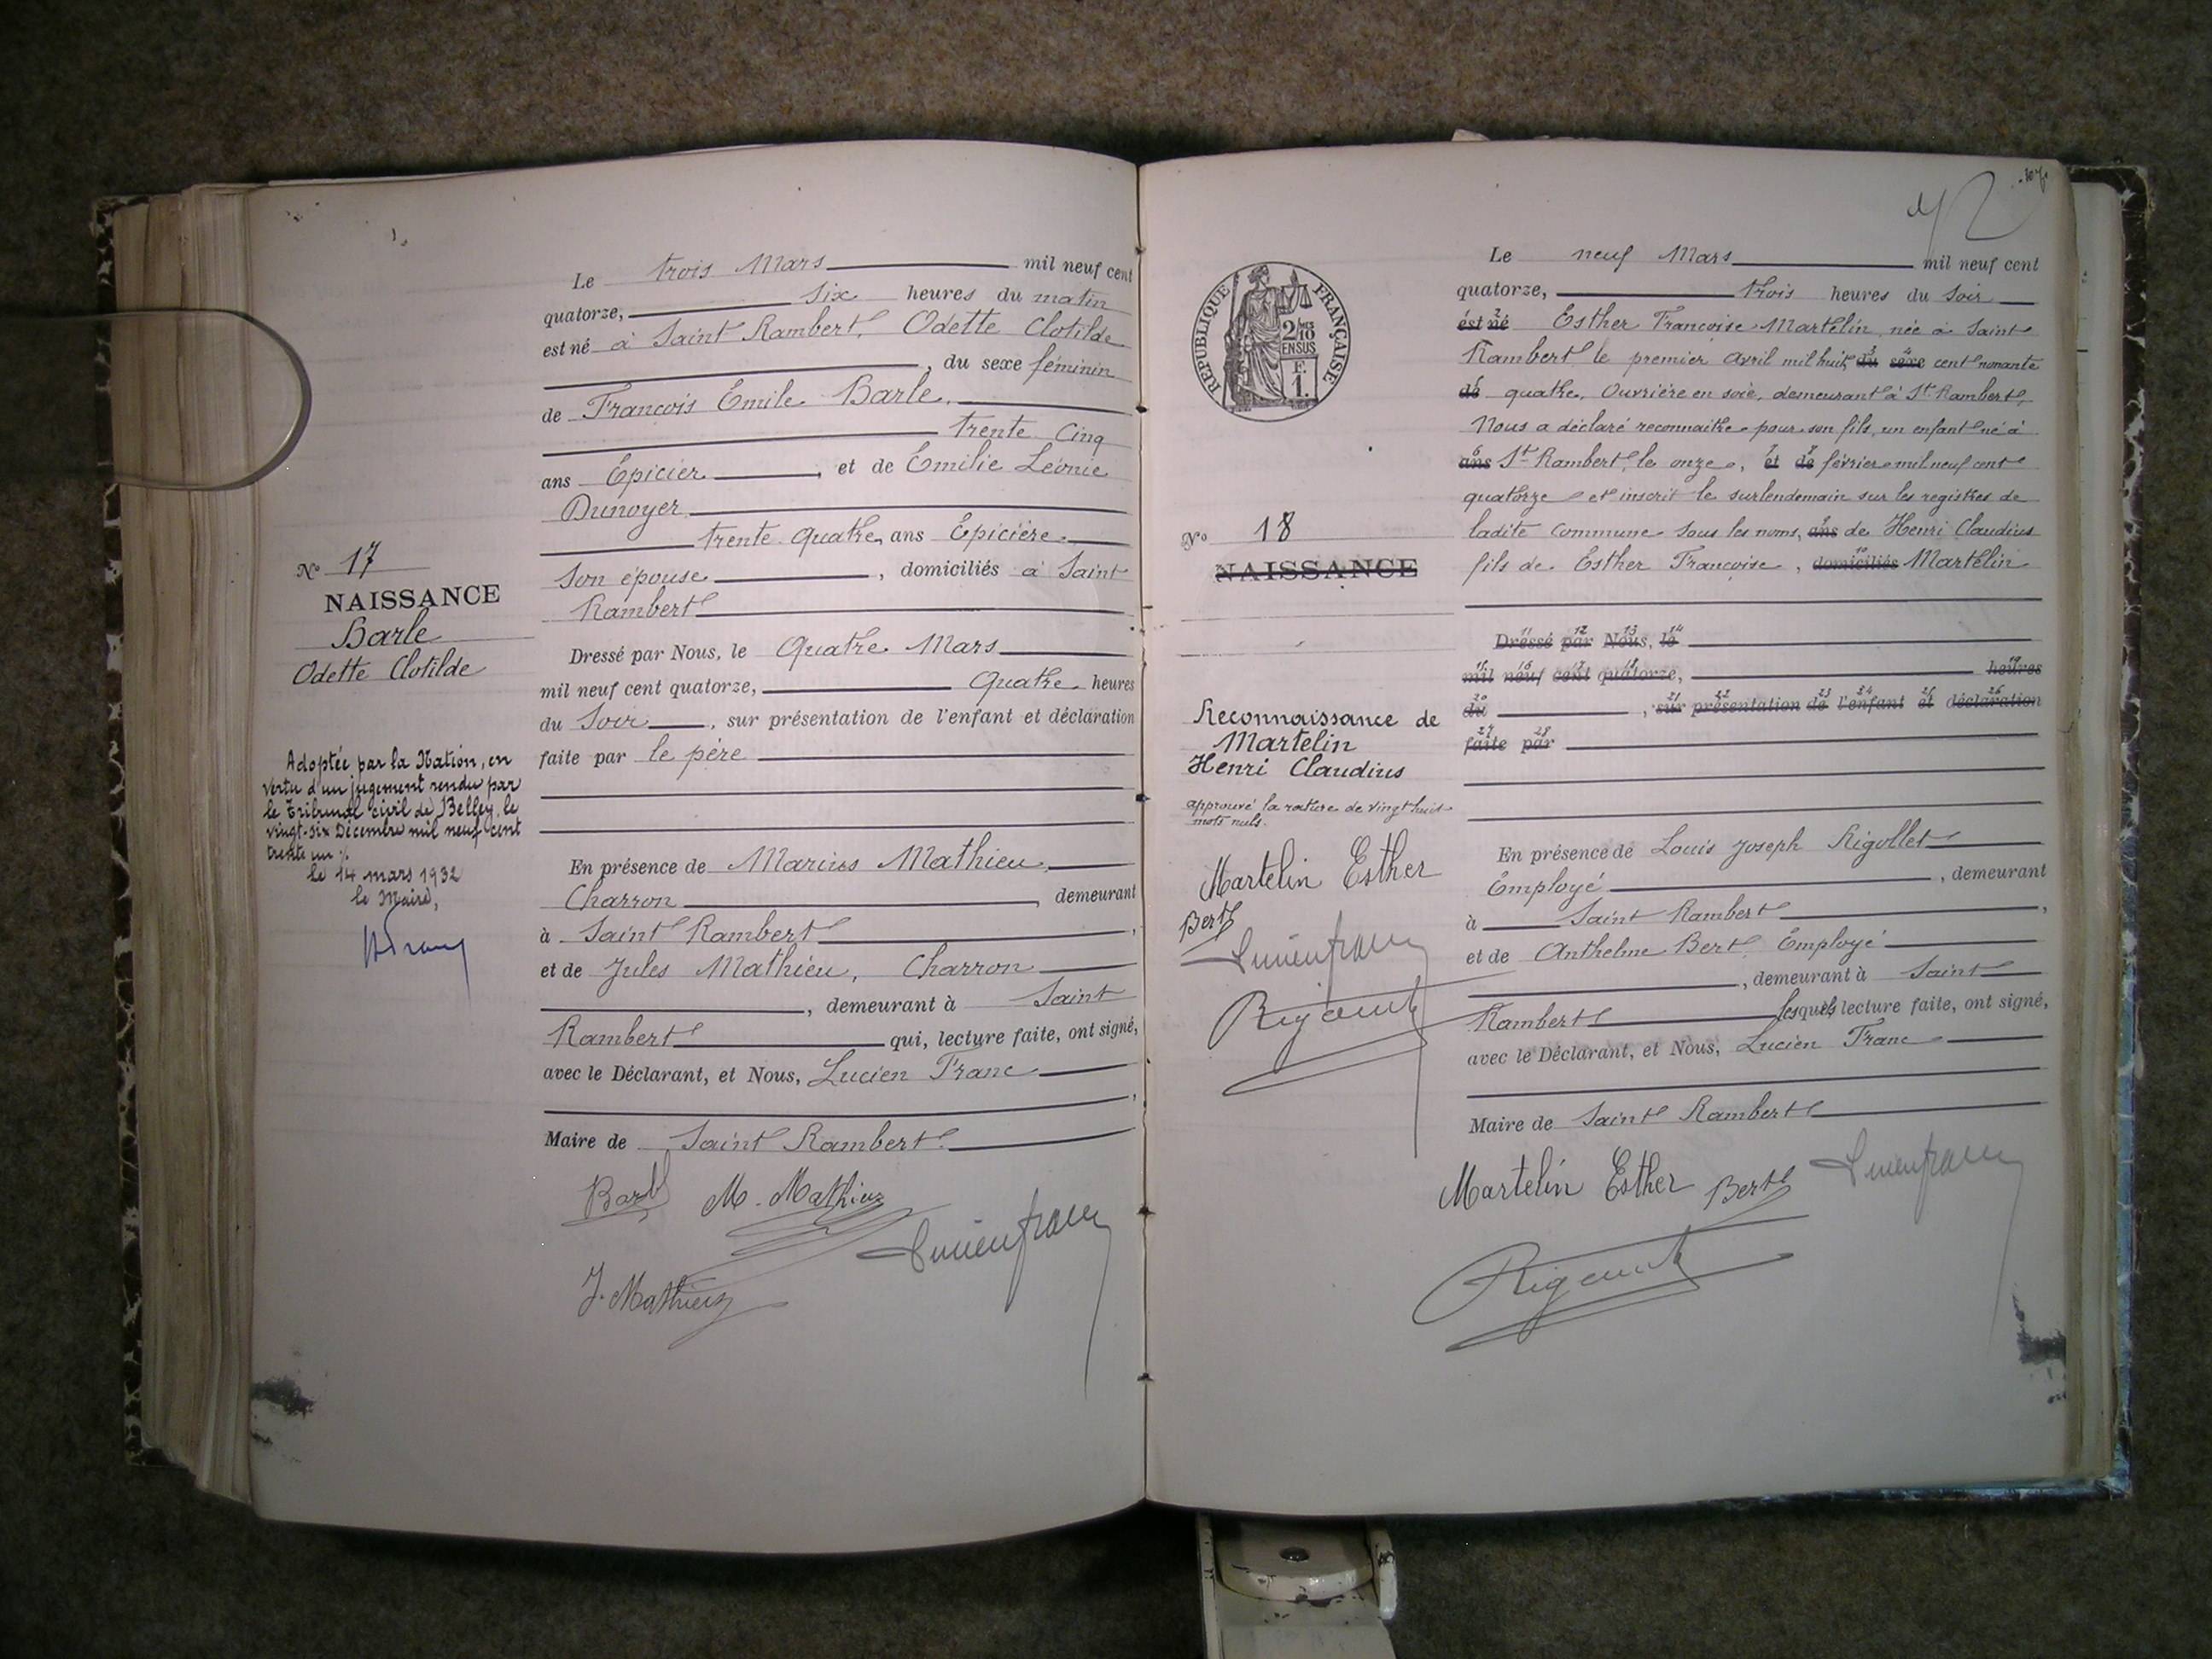 Le trois Mars mil neuf cent
quatorze, six heures du matin
est né à Saint Rambert, Odette Clotilde
, du sexe féminin
de François Emile Barle,
trente Cinq
ans Epicier , et de Emilie Léonie
Dunoyer
trente quatre, ans Epicière
Son épouse , domiciliés à Saint
Rambert
Dressé par Nous, le Quatre Mars
mil neuf cent quatorze, Quatre heures
du Soir , sur présentation de l'enfant et déclaration
faite par le père
En présence de Marius Mathieu,
Charron , demeurant
à Saint Rambert ,
et de Jules Mathieu, Charron
, demeurant à Saint
Rambert qui, lecture faite, ont signé,
avec le Déclarant, et Nous, Lucien Franc
,
Maire de Saint Rambert.
Barle M. Mathieu
Lucien franc
J. Mathieu
No 17
NAISSANCE
Barle
Odette Clotilde
Adoptée par la Nation, en
vertu d'un jugement rendu par
le Tribunal civil de Belley, le
vingt-six Décembre mil neuf cent
trente un %.
le 14 mars 1932
le Maire,
Le neuf Mars mil neuf cent
quatorze, trois heures du soir
est né Esther Françoise Martelin, née à Saint
Rambert le premier avril mil huit du sexe cent nonante
de quatre, Ouvrière en soie, demeurant à St Rambert,
Nous a déclaré reconnaitre pour son fils, un enfant né à
ans St Rambert, le onze, et de février mil neuf cent
quatorze et inscrit le surlendemain sur les registres de
ladite commune sous les noms, ans de Henri Claudius
fils de Esther Françoise, domiciliés Martelin
Dressé par Nous, le
mil neuf cent quatorze, heures
du , sur présentation de l'enfant et déclaration
faite par
En présence de Louis Joseph Rigollet
Employé , demeurant
à Saint Rambert ,
et de Anthelme Bert, Employé
, demeurant à Saint
Rambert lesquels lecture faite, ont signé,
avec le Déclarant, et Nous, Lucien Franc
Maire de Saint Rambert
Martelin Esther Bert Lucien franc
RÉPUBLIQUE FRANÇAISE
2/10
EN SUS
F.
1.
No 18
NAISSANCE
Reconnaissance de
Martelin
Henri Claudius
approuvé la rature de vingt huit
mots nuls.
Martelin Esther
Bert
Lucien franc